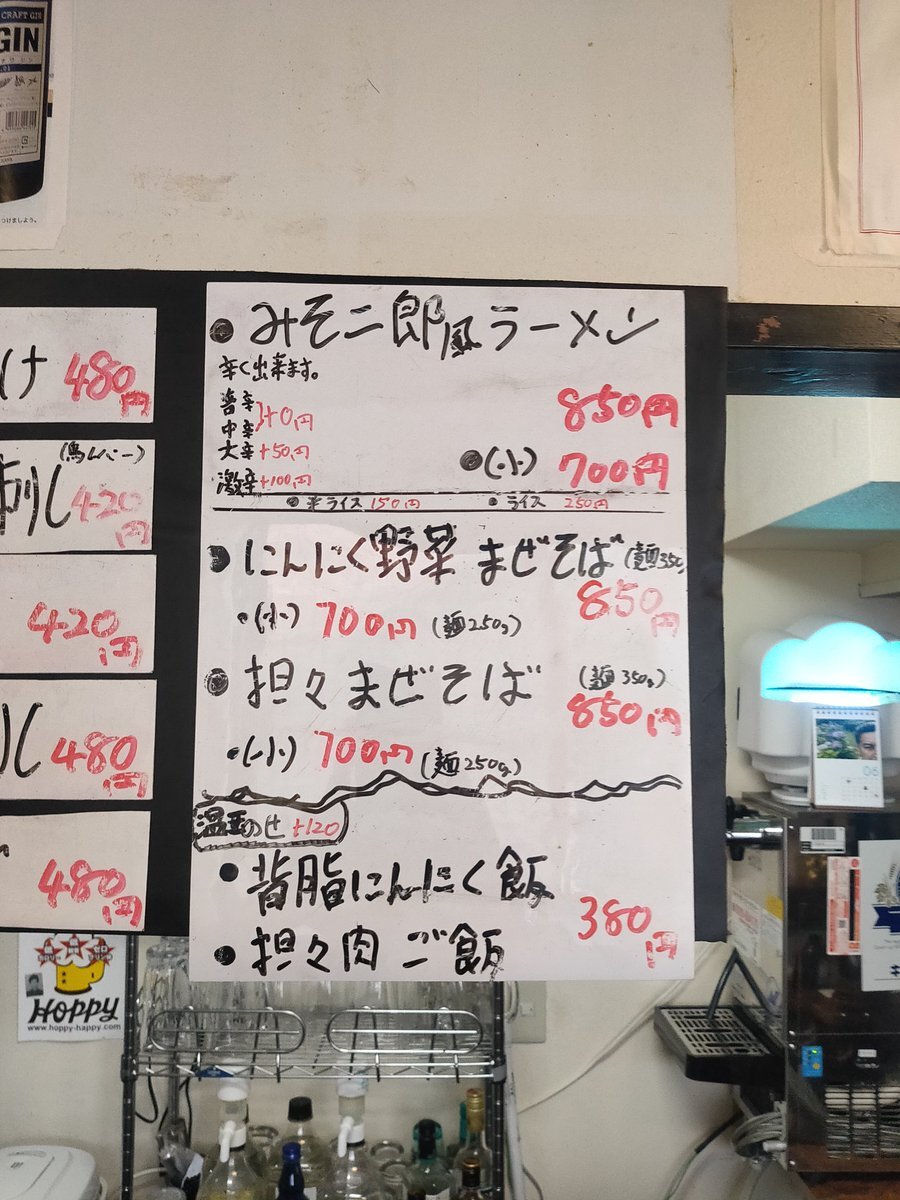 CRAFT GIN
GIN
つけましょう。
け 480円
刺し (馬レバー) 420円
420円
し 480円
480円
●みそ二郎風ラーメン
辛く出来ます。
850円
普辛
中辛 }+0円
大辛 +50円
激辛 +100円
●(小) 700円
●半ライス 150円 ●ライス 250円
●にんにく野菜 まぜそば (麺350g)
850円
•(小) 700円 (麺250g)
●担々まぜそば (麺350g)
850円
•(小) 700円 (麺250g)
温玉のせ +120
●背脂にんにく飯
380円
●担々肉ご飯
HOPPY
www.hoppy-happy.com
06